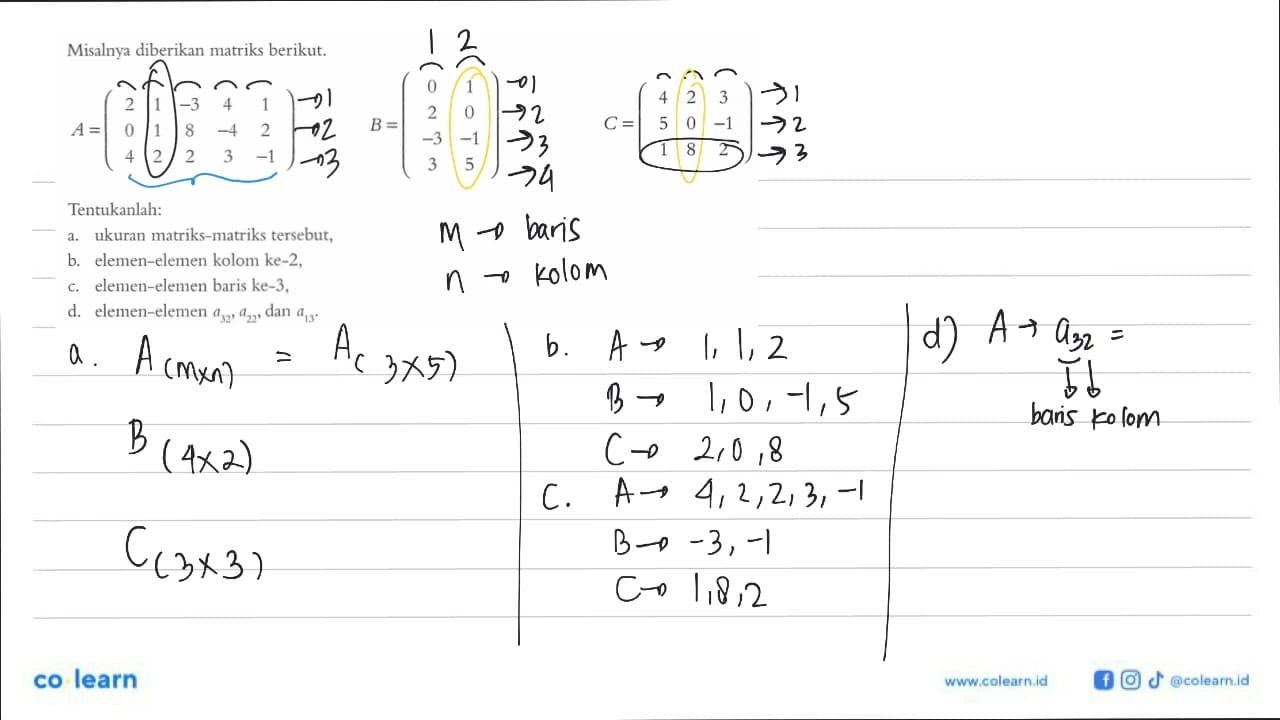 Misalnya diberikan matriks berikut.
1 2
A = ( 2 1 -3 4 1 ) → 1
0 1 8 -4 2 → 2
4 2 2 3 -1 → 3
B = ( 0 1 ) → 1
2 0 → 2
-3 -1 → 3
3 5 → 4
C = ( 4 2 3 ) → 1
5 0 -1 → 2
1 8 2 → 3
Tentukanlah:
a. ukuran matriks-matriks tersebut,
b. elemen-elemen kolom ke-2,
c. elemen-elemen baris ke-3,
d. elemen-elemen a₃₂, a₂₂, dan a₁₃.
M → baris
n → kolom
a. A(mxn) = A( 3x5)
B (4x2)
C(3x3)
b. A → 1, 1, 2
B → 1, 0, -1, 5
C → 2, 0, 8
C. A → 4, 2, 2, 3, -1
B → -3, -1
C → 1, 8, 2
d) A → a₃₂ =
baris kolom
co learn
www.colearn.id
@colearn.id